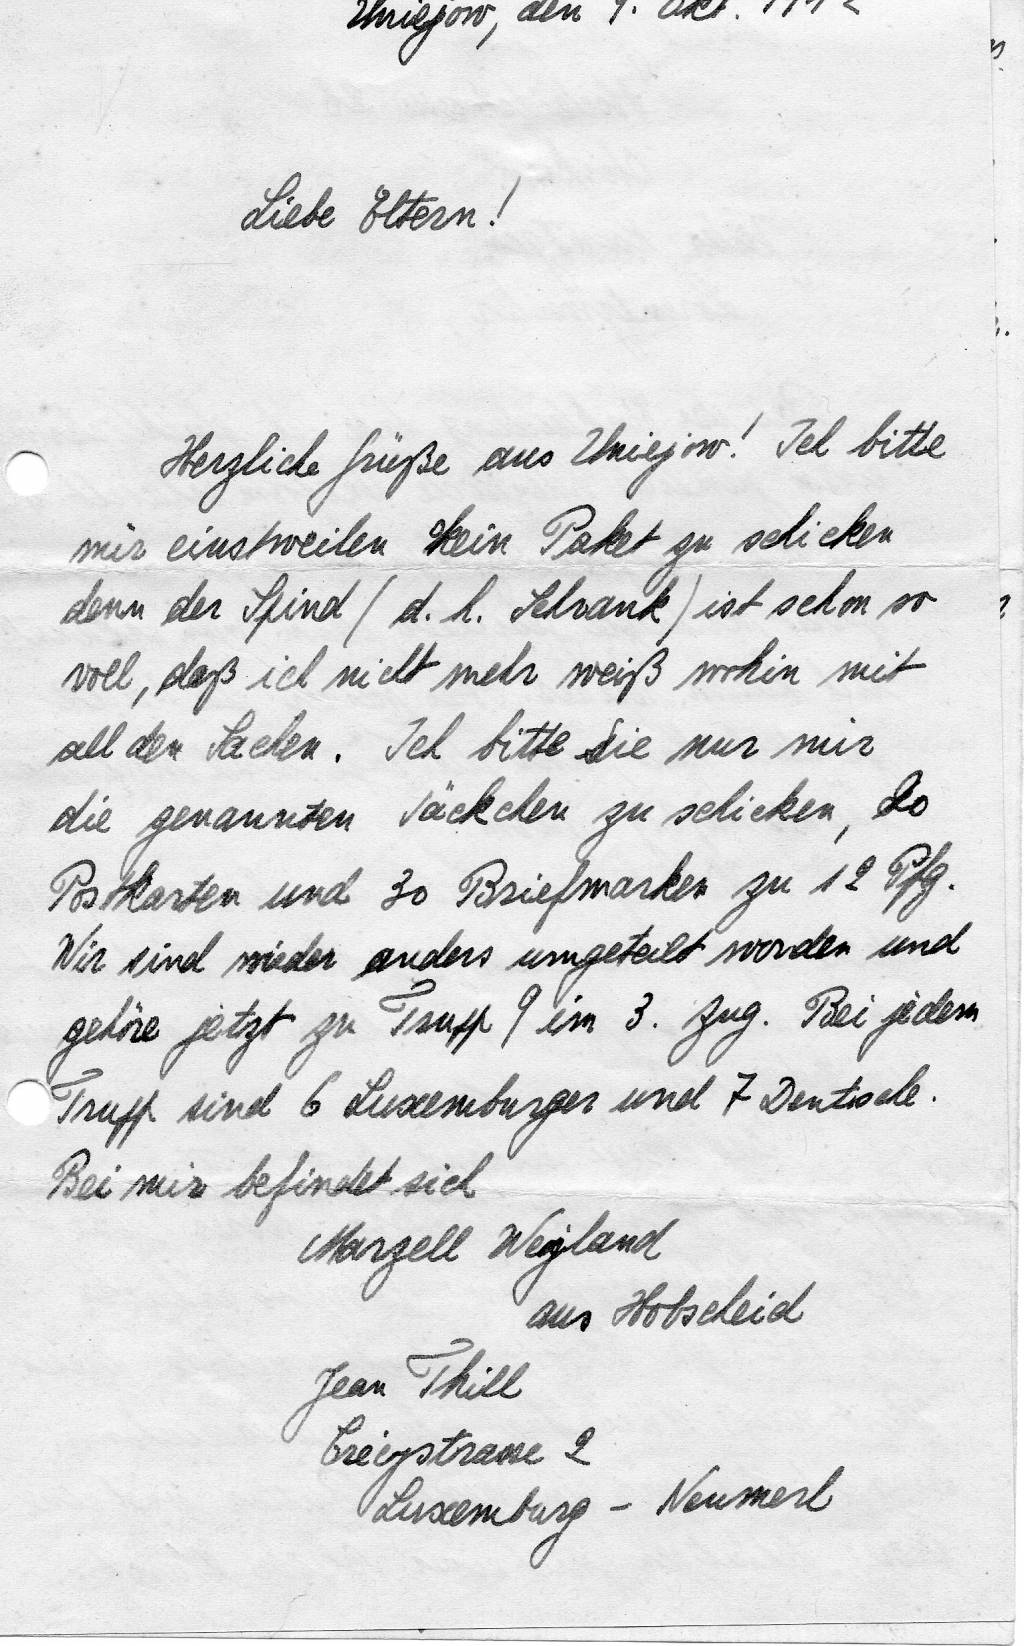 Uniejow, den 9. Okt. 1942
Liebe Eltern!
Herzliche Grüße aus Uniejow! Ich bitte
mir einstweilen kein Paket zu schicken
denn der Spind (d. h. Schrank) ist schon so
voll, daß ich nicht mehr weiß wohin mit
all den Sachen. Ich bitte Sie nur mir
die genannten Säckchen zu schicken, 20
Postkarten und 30 Briefmarken zu 12 Pfg.
Wir sind wieder anders umgeteilt worden und
gehöre jetzt zu Trupp 9 im 3. Zug. Bei jedem
Trupp sind 6 Luxemburger und 7 Deutsche.
Bei mir befindet sich
Marzell Weyland
aus Hobscheid
Jean Thill
2
Luxemburg - Neumerl